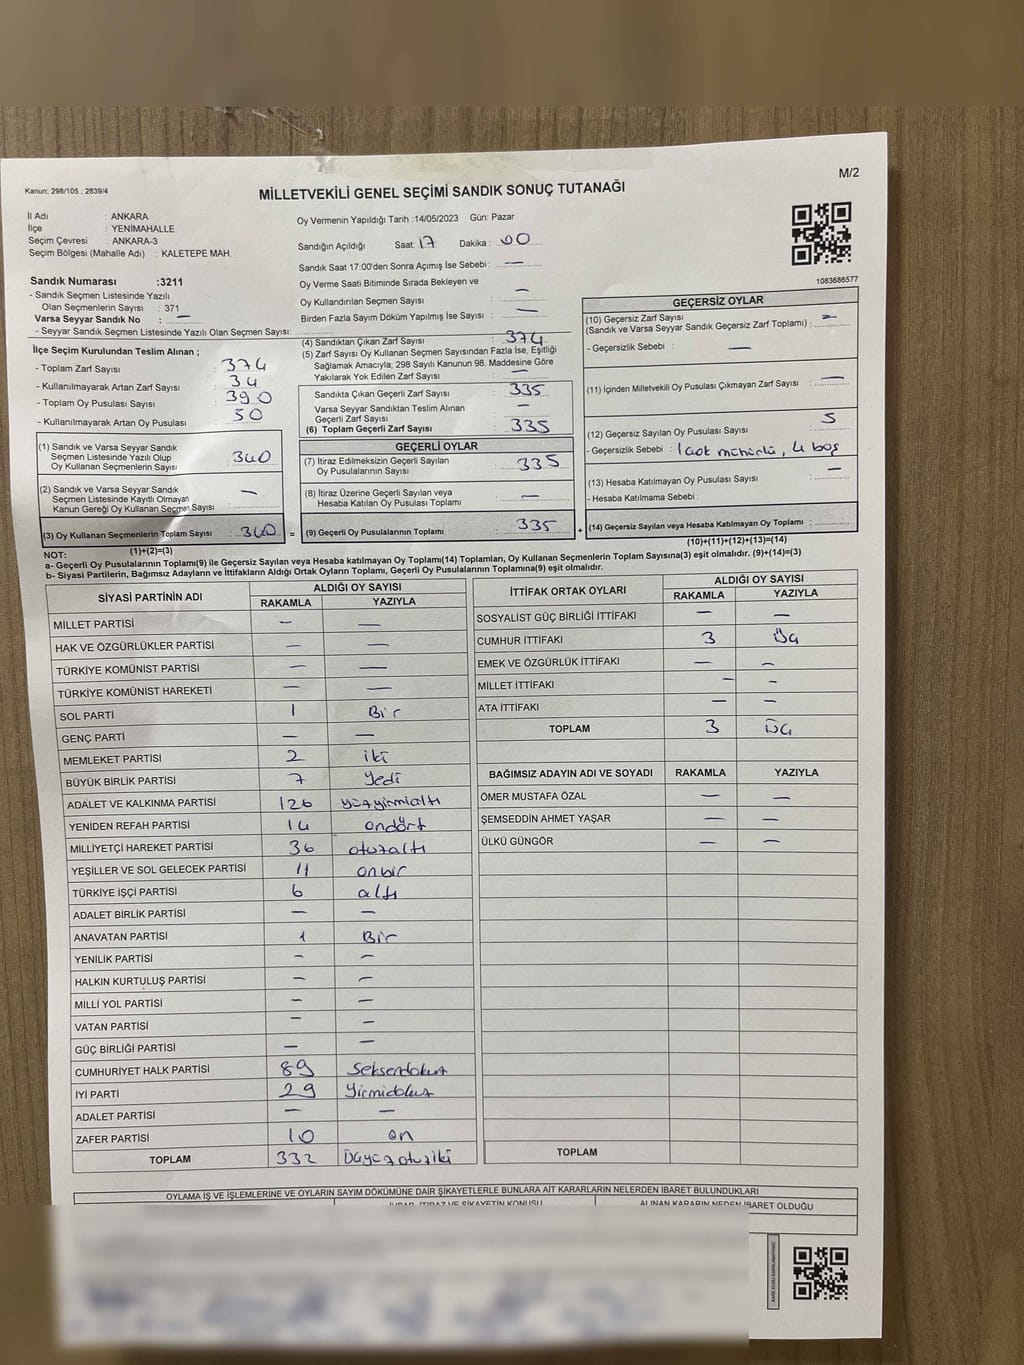 M/2
Kanun; 298/105 , 2839/4
MİLLETVEKİLİ GENEL SEÇİMİ SANDIK SONUÇ TUTANAĞI
İl Adı : ANKARA
İlçe : YENİMAHALLE
Seçim Çevresi : ANKARA-3
Seçim Bölgesi (Mahalle Adı) : KALETEPE MAH.
Sandık Numarası :3211
- Sandık Seçmen Listesinde Yazılı
Olan Seçmenlerin Sayısı : 371
Varsa Seyyar Sandık No : —
- Seyyar Sandık Seçmen Listesinde Yazılı Olan Seçmen Sayısı:
Oy Vermenin Yapıldığı Tarih :14/05/2023 Gün: Pazar
Sandığın Açıldığı Saat: 17 Dakika : 00
Sandık Saat 17:00'den Sonra Açımış İse Sebebi : —
Oy Verme Saati Bitiminde Sırada Bekleyen ve
Oy Kullandırılan Seçmen Sayısı : —
Birden Fazla Sayım Döküm Yapılmış İse Sayısı : —
1083686577
İlçe Seçim Kurulundan Teslim Alınan ;
- Toplam Zarf Sayısı : 374
- Kullanılmayarak Artan Zarf Sayısı : 34
- Toplam Oy Pusulası Sayısı : 390
- Kullanılmayarak Artan Oy Pusulası : 50
(1) Sandık ve Varsa Seyyar Sandık
Seçmen Listesinde Yazılı Olup : 340
Oy Kullanan Seçmenlerin Sayısı
(2) Sandık ve Varsa Seyyar Sandık
Seçmen Listesinde Kayıtlı Olmayan
Kanun Gereği Oy Kullanan Seçmen Sayısı : —
(3) Oy Kullanan Seçmenlerin Toplam Sayısı : 340 =
(1)+(2)=(3)
(4) Sandıktan Çıkan Zarf Sayısı : 374
(5) Zarf Sayısı Oy Kullanan Seçmen Sayısından Fazla İse, Eşitliği
Sağlamak Amacıyla, 298 Sayılı Kanunun 98. Maddesine Göre
Yakılarak Yok Edilen Zarf Sayısı : —
Sandıkta Çıkan Geçerli Zarf Sayısı : 335
Varsa Seyyar Sandıktan Teslim Alınan
Geçerli Zarf Sayısı : —
(6) Toplam Geçerli Zarf Sayısı : 335
GEÇERLİ OYLAR
(7) İtiraz Edilmeksizin Geçerli Sayılan
Oy Pusulalarının Sayısı : 335
(8) İtiraz Üzerine Geçerli Sayılan veya
Hesaba Katılan Oy Pusulası Toplamı : —
(9) Geçerli Oy Pusulalarının Toplamı : 335 +
GEÇERSİZ OYLAR
(10) Geçersiz Zarf Sayısı : —
(Sandık ve Varsa Seyyar Sandık Geçersiz Zarf Toplamı)
- Geçersizlik Sebebi : —
(11) İçinden Milletvekili Oy Pusulası Çıkmayan Zarf Sayısı : —
(12) Geçersiz Sayılan Oy Pusulası Sayısı : 5
- Geçersizlik Sebebi : 1 çok mühürlü, 4 boş
(13) Hesaba Katılmayan Oy Pusulası Sayısı : —
- Hesaba Katılmama Sebebi :
(14) Geçersiz Sayılan veya Hesaba Katılmayan Oy Toplamı :
(10)+(11)+(12)+(13)=(14)
NOT:
a- Geçerli Oy Pusulalarının Toplamı(9) ile Geçersiz Sayılan veya Hesaba katılmayan Oy Toplamı(14) Toplamları, Oy Kullanan Seçmenlerin Toplam Sayısına(3) eşit olmalıdır. (9)+(14)=(3)
b- Siyasi Partilerin, Bağımsız Adayların ve İttifakların Aldığı Ortak Oyların Toplamı, Geçerli Oy Pusulalarının Toplamına(9) eşit olmalıdır.
SİYASİ PARTİNİN ADI ALDIĞI OY SAYISI
RAKAMLA YAZIYLA
MİLLET PARTİSİ — —
HAK VE ÖZGÜRLÜKLER PARTİSİ — —
TÜRKİYE KOMÜNİST PARTİSİ — —
TÜRKİYE KOMÜNİST HAREKETİ — —
SOL PARTİ 1 Bir
GENÇ PARTİ — —
MEMLEKET PARTİSİ 2 iki
BÜYÜK BİRLİK PARTİSİ 7 Yedi
ADALET VE KALKINMA PARTİSİ 126 yüzyirmialtı
YENİDEN REFAH PARTİSİ 14 ondört
MİLLİYETÇİ HAREKET PARTİSİ 36 otuzaltı
YEŞİLLER VE SOL GELECEK PARTİSİ 11 onbir
TÜRKİYE İŞÇİ PARTİSİ 6 altı
ADALET BİRLİK PARTİSİ — —
ANAVATAN PARTİSİ 1 Bir
YENİLİK PARTİSİ — —
HALKIN KURTULUŞ PARTİSİ — —
MİLLİ YOL PARTİSİ — —
VATAN PARTİSİ — —
GÜÇ BİRLİĞİ PARTİSİ — —
CUMHURİYET HALK PARTİSİ 89 Seksendokuz
İYİ PARTİ 29 Yirmidokuz
ADALET PARTİSİ — —
ZAFER PARTİSİ 10 on
TOPLAM 332 Üçyüzotuziki
İTTİFAK ORTAK OYLARI ALDIĞI OY SAYISI
RAKAMLA YAZIYLA
SOSYALİST GÜÇ BİRLİĞİ İTTİFAKI — —
CUMHUR İTTİFAKI 3 Üç
EMEK VE ÖZGÜRLÜK İTTİFAKI — —
MİLLET İTTİFAKI — —
ATA İTTİFAKI — —
TOPLAM 3 Üç
BAĞIMSIZ ADAYIN ADI VE SOYADI RAKAMLA YAZIYLA
ÖMER MUSTAFA ÖZAL — —
ŞEMSEDDİN AHMET YAŞAR — —
ÜLKÜ GÜNGÖR — —
TOPLAM
OYLAMA İŞ VE İŞLEMLERİNE VE OYLARIN SAYIM DÖKÜMÜNE DAİR ŞİKAYETLERLE BUNLARA AİT KARARLARIN NELERDEN İBARET BULUNDUKLARI
İTİRAZ VE ŞİKAYETİN KONUSU ALINAN KARARIN NEDEN İBARET OLDUĞU